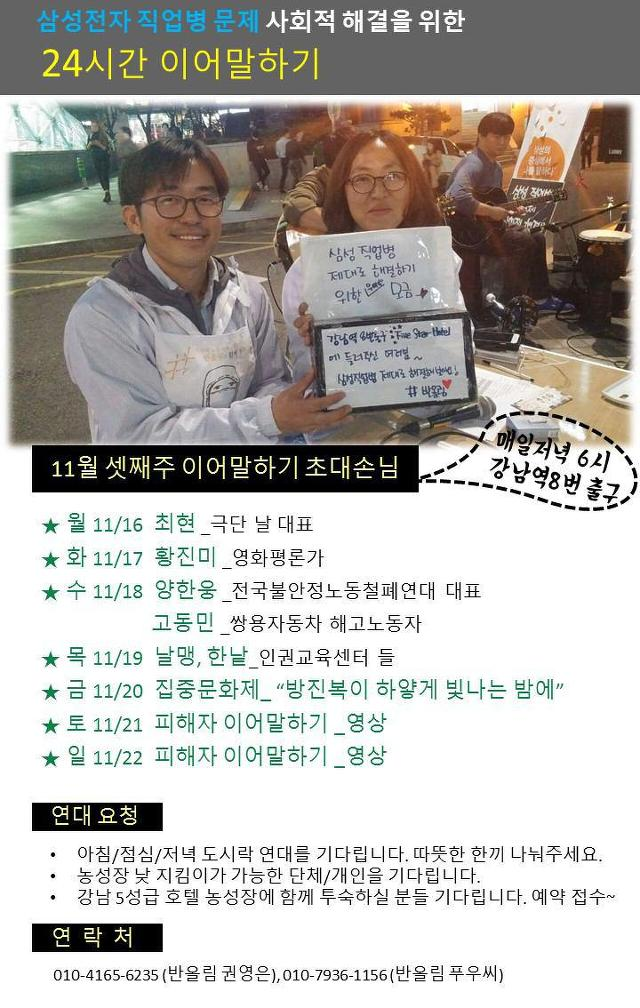 삼성전자 직업병 문제 사회적 해결을 위한
24시간 이어말하기
삼성의
중심에서
삼성 직업병
삼성 직업병
제대로 해결하기
위한 모금
강남역 8번출구 Five Star Hotel
에 들러주신 여러분~
삼성직업병 제대로 해결해보아요!
# 반올림
매일저녁 6시
강남역8번 출구
11월 셋째주 이어말하기 초대손님
★ 월 11/16 최현 _극단 날 대표
★ 화 11/17 황진미 _영화평론가
★ 수 11/18 양한웅 _전국불안정노동철폐연대 대표
고동민 _쌍용자동차 해고노동자
★ 목 11/19 날맹, 한낱_인권교육센터 들
★ 금 11/20 집중문화제_ “방진복이 하얗게 빛나는 밤에”
★ 토 11/21 피해자 이어말하기 _영상
★ 일 11/22 피해자 이어말하기 _영상
연대 요청
• 아침/점심/저녁 도시락 연대를 기다립니다. 따뜻한 한끼 나눠주세요.
• 농성장 낮 지킴이가 가능한 단체/개인을 기다립니다.
• 강남 5성급 호텔 농성장에 함께 투숙하실 분들 기다립니다. 예약 접수~
연 락 처
010-4165-6235 (반올림 권영은), 010-7936-1156 (반올림 푸우씨)